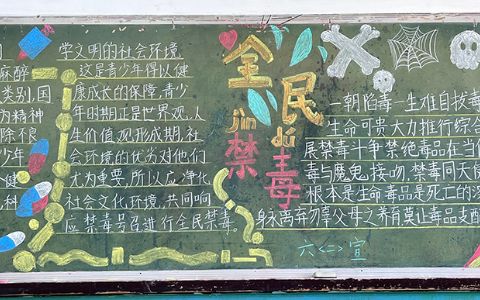 的
麻醉
类别,国
为精神
除不良
少年
健
科
学文明的社会环境,
这是青少年得以健
康成长的保障,青少
年时期正是世界观、人
生价值观形成期,社
会环境的优劣对他们
尤为重要,所以应净化
社会文化环境,共同响
应禁毒号召进行全民禁毒。
全民
jìn dú
禁毒
一朝陷毒一生难自拔毒
生命可贵大力推行综合
展禁毒斗争禁绝毒品在当
毒与魔鬼接吻,禁毒同天使
根本是生命毒品是死亡的深
身永离弃勿辜父母之养育莫让毒品支配
六<二>宣